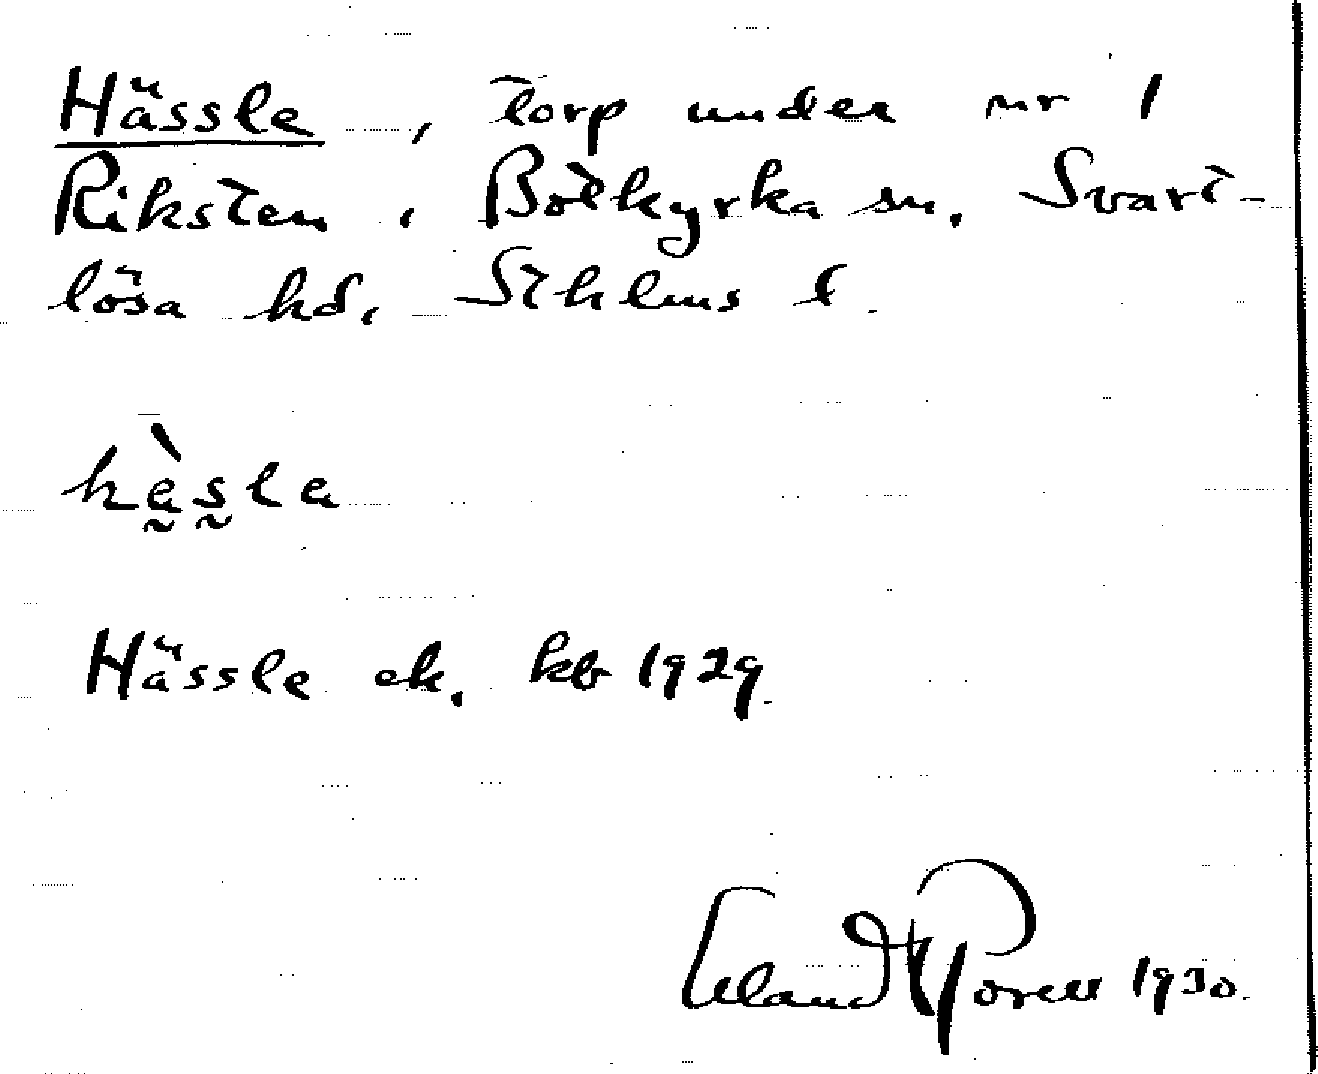 Hässle, torp under nr 1
Riksten, Botkyrka sn. Svart-
lösa hd. Sthlms l.
hä̀sla
Hässle ek. kb 1929
1930.